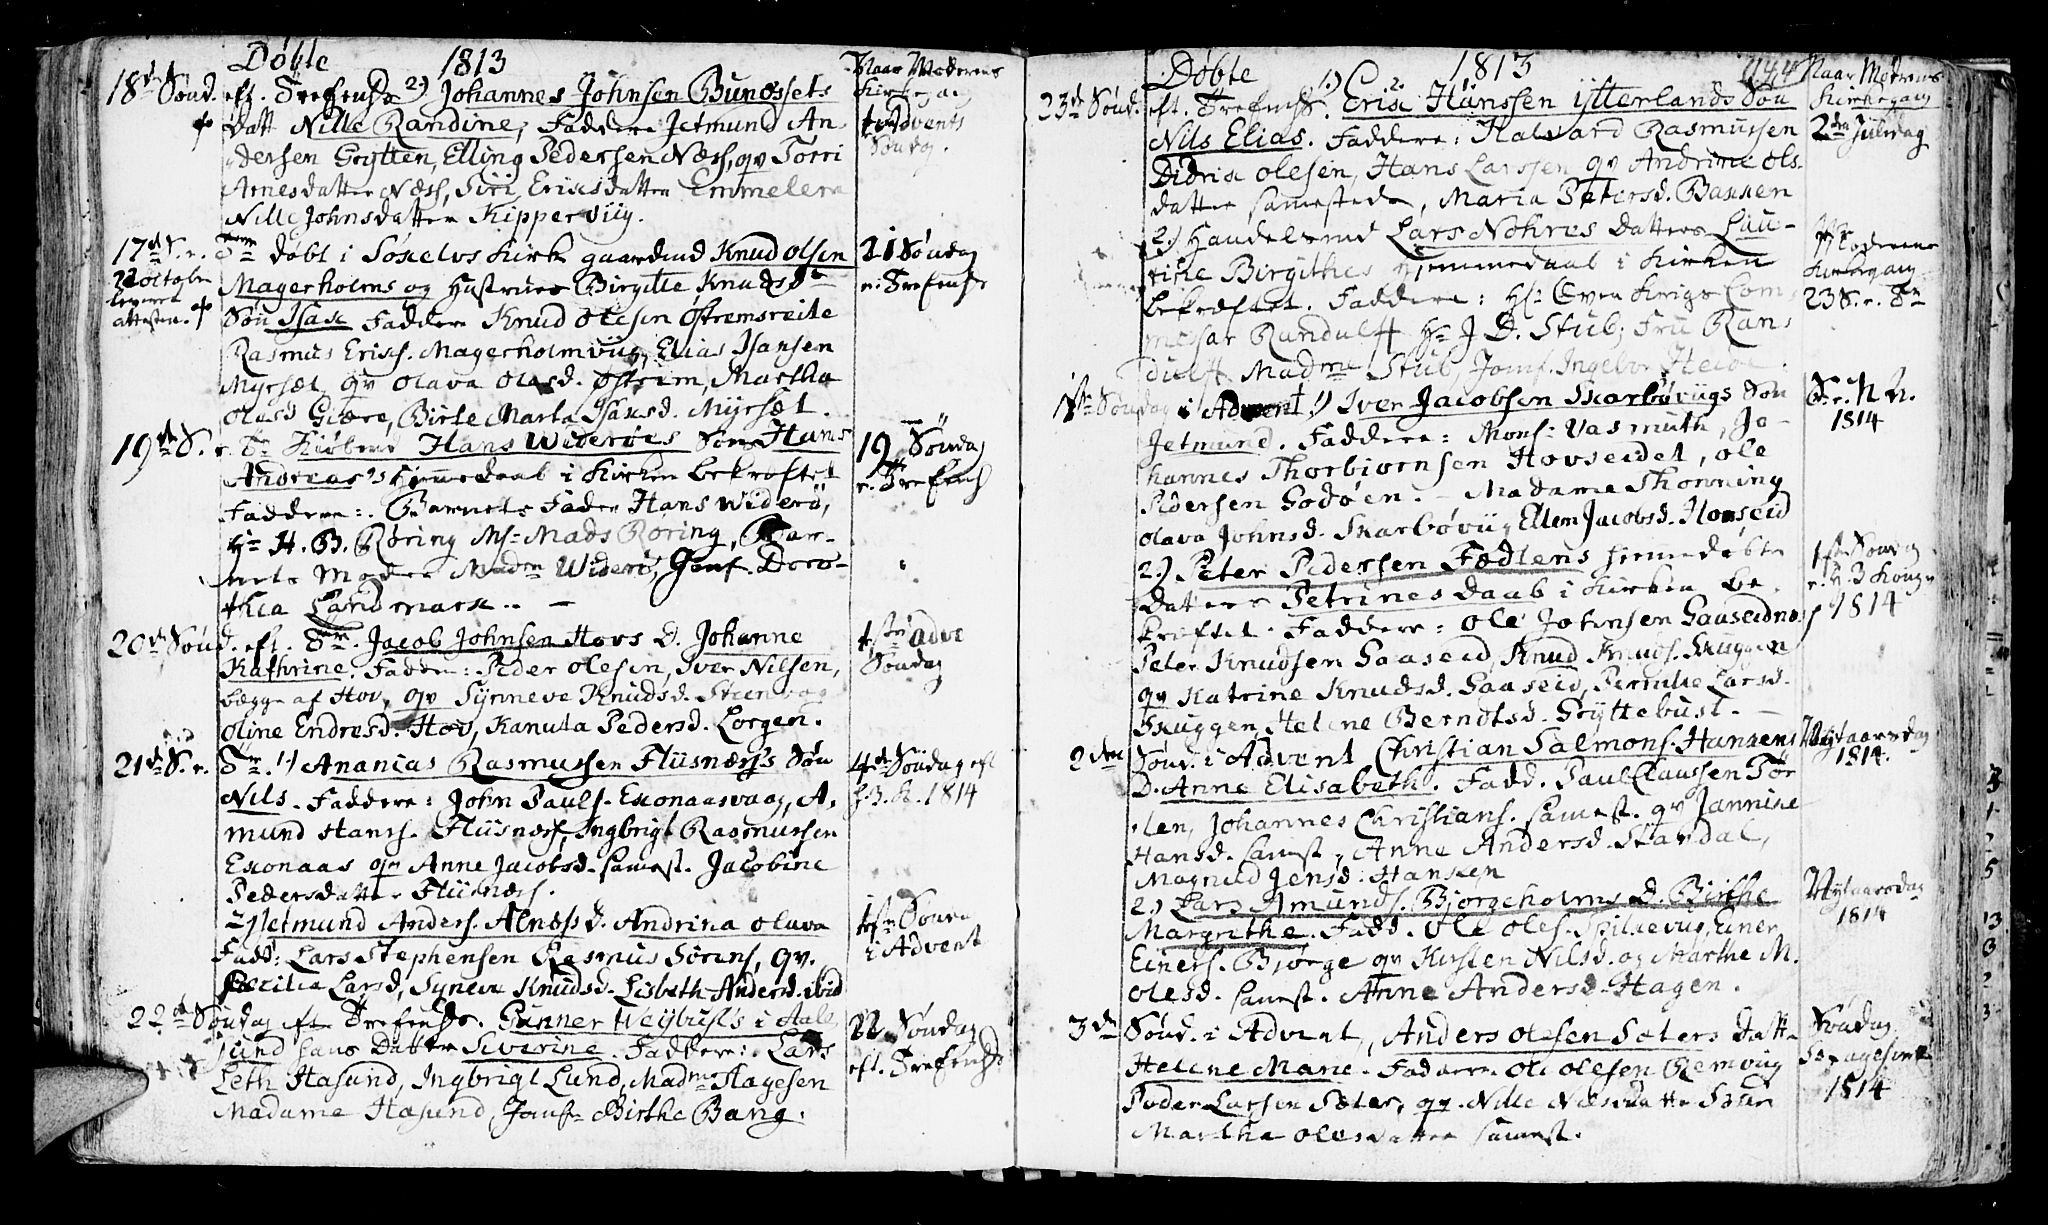 Døbte 1813 Naar Moderens
Kirkegang
18de Sønd. eft. Trefensh 2) Johannes Johnsen Bunossets
Datt Nille Randine, Faddere Jetmund An-
dersen Grytten, Elling Pedersen Næss, qv Tørri
Arnesdatter Næss, Siri Ericsdatter Emmelera
Nille Johnsdatter Kippervüg.
Advents
Søndag.
17de S. e. Trin døbt i Sökelvs Kirke gaardmd Knud Olsen
22 october
leveret
attesten.
Magerholms og Hustrues Birgitte Knudsdr
Søn Isac Faddere Knud Olesen Østremsreite
Rasmus Erics. Magerholmvüg, Elias Isansen
Myrsæt, qv Olava Olesd. Østrem, Martha
Olesd Giære, Birte Marta Isansd. Myrsæt.
21 Søndag
e. Trefensh
19de S. e. Tr Kiøbmd Hans Widerøes Søn Hans
Andreas's Hiemmedaab i Kirken bekræftet
Faddere: Barnets Fader Hans Widerø,
Hr H. B. Røring Ms. Mads Røring, Bar-
nets Moder Madm Widerø, Jomf. Doro-
thea Landmark. —
19 Søndag
e. Trefensh
20de Sønd. eft. Tr. Jacob Johnsen Hovs D. Johanne
Kathrine. Faddere: Peder Olesen, Iver Nilsen,
begge af Hov, qv Synneve Knudsd. Steenvaag
Oline Endresd. Hov, Kanuta Pedersd. Lorgen.
1ste Adve
Søndag
21de S. e. Tr. 1) Ananias Rasmussen Flisnæss Søn
Nils. Faddere: John Pauls. Exonaasvaag, A-
mund Hans. Flisnæss, Ingbrigt Rasmussen
Exonaas qv Anne Jacobsd. samest. Jacobine
Pedersdatter Flisnæss.
4de Søndag eft
H. 3. K. 1814
2) Jetmund Anders. Alnæss D. Andrina Olava
Fadd: Lars Stephensen Rasmus Sørens, qv.
Cecilia Larsd, Synneve Knudsd. Lisbeth Andersd. ibid
1ste Sønd
i Advent
22de Søndag eft Trefensh. Gunner Weybusts i Aale
sund hans Datter Severine. Faddere: Lars
Leth Hasund, Ingbrigt Lund, Madme Aagesen
Madame Hasund, Jomfr Birthe Bang.
22 Søndag
eft. Trefensh
Døbte 1813 Naar Modrens
Kirkegang
23de Sønd. eft. Trefensh. 1) Eric Hanssen Ytterlands Søn
Nils Elias. Faddere: Halvard Rasmussen
Didric Olesen, Hans Larssen qv Andrine Ols-
datter sammestede, Maria Petersd. Bakken
2den Juledag
2) Handelsmd Lars Nohres Datters Lau-
rine Birgithes Hjemmedaab i Kirken
bekræftet. Faddere: Hr Over Krigs Com-
missar Randulff Hr J. D. Stub, Fru Ran-
dulff Madme Stub, Jomf. Ingebor Heide.
Moderens
Kirkegang
23 S. e. Tr
1ste Søndag i Advent 1) Iver Jacobsen Skarbøviigs Søn
Jetmund. Faddere: Mons. Vasmuth, Jo-
hannes Thorbiørnsen Hovseidet, Ole
Pedersen Godøen. — Madame Thonning
Olava Johnsd. Skarbøviig, Ellen Jacobsd. Hovseid
S. e. N. A.
1814
2) Peter Pedersen Fædtens hiemmedøbte
Datters Petrines Daab i Kirken be-
kræftet. Faddere: Ole Johnsen Gaaseidnæs
Peter Knudsen Gaaseid, Knud Knuds. Skuggen
qv Katrine Knudsd. Gaaseid, Pernille Larsd.
Skuggen, Helene Berndtsd. Gryttebust. —
1ste Søndag
e. H. 3 Konge
1814
2den Sønd. i Advent Christian Salmons. Hansens
D. Anne Elisabeth. Fadd. Paul Claussen Tør
len, Johannes Christians. samest. qv Jannike
Hansd. samest. Anne Andersd. Standal,
Magnild Jensd. Hansen
Nytaarsdag
1814.
2) Lars Amunds. Bjørgeholms D. Birthe
Margrethe. Fadd. Ole Oles. Spilkevig, Einer
Einers. Bjørge qv Kirsten Nilsd. og Marthe M.
Olesd. samest. Anne Andersd. Hagen.
Nytaarsdag
1814
3de Sønd. i Advent, Anders Olesen Sæters Datt.
Helene Marie. Faddere Ole Olesen Remvüg
Peder Larsen Sæter, qv. Nille Nilsdatter Sæter
Martha Olesdatter samest.
Søndag
Septagesima
1814